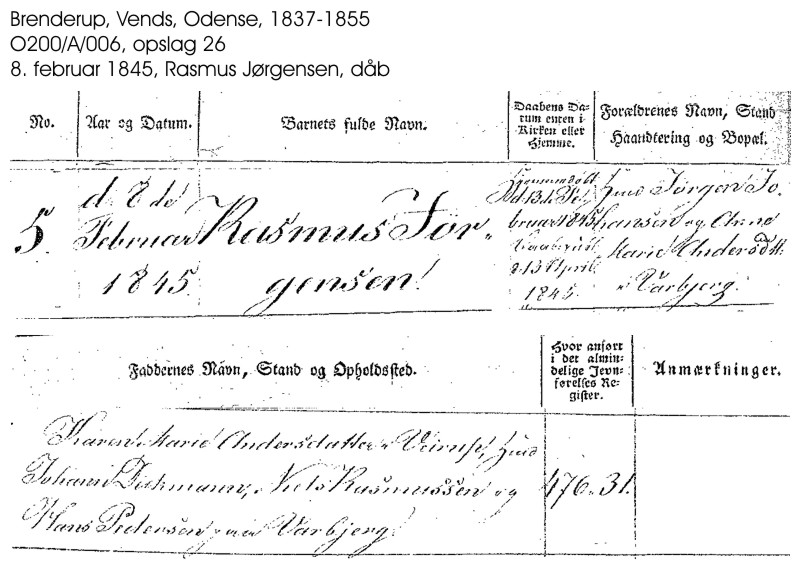 Brenderup, Vends, Odense, 1837-1855
O200/A/006, opslag 26
8. februar 1845, Rasmus Jørgensen, dåb
No.
Aar og Datum.
Barnets fulde Navn.
Daabens Da-
tum enten i
Kirken eller
Hjemme.
Forældrenes Navn, Stand
Haandtering og Bopæl.
5.
d. 8de
Februar
1845.
Rasmus Jør-
gensen.
Hjemmedøbt
d. 13d. Fe-
bruar 1845
d. 13 April
1845.
Huusm. Jørgen Jo-
hansen og Ane
Marie Andersdtt.
i Varbjerg.
Faddernes Navn, Stand og Opholdssted.
Hvor anført
i det almin-
delige Jevn-
førelses Re-
gister.
Anmærkninger.
Karen Marie Andersdatter i
Johann Niels Rasmussen og
Hans Pedersen paa Varbjerg.
476. 31.